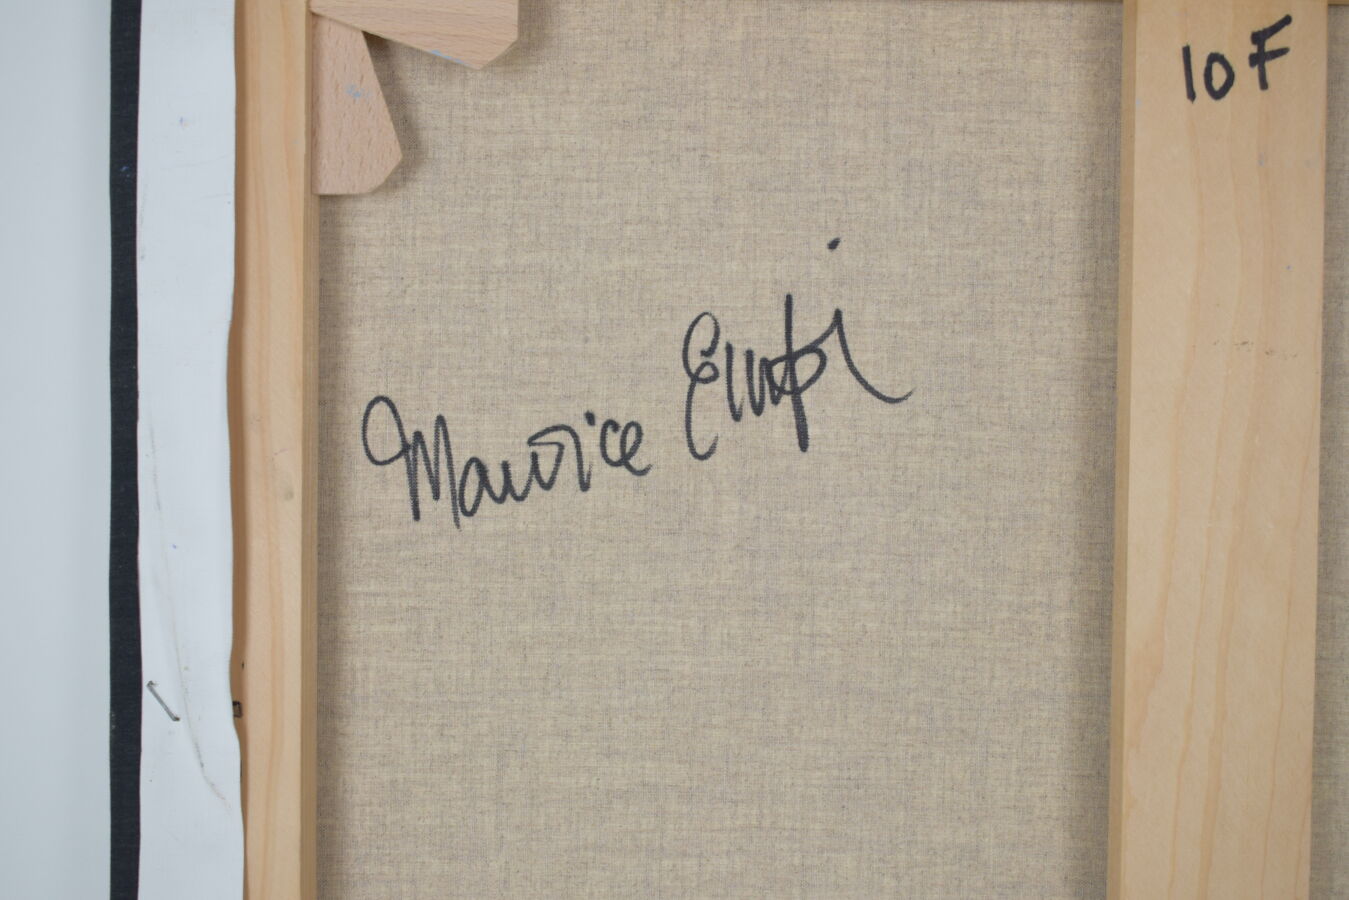 10 F
Maurice Empi